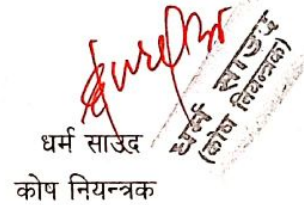 धर्म साउद
(कोष नियन्त्रक)
धर्म साउद
कोष नियन्त्रक